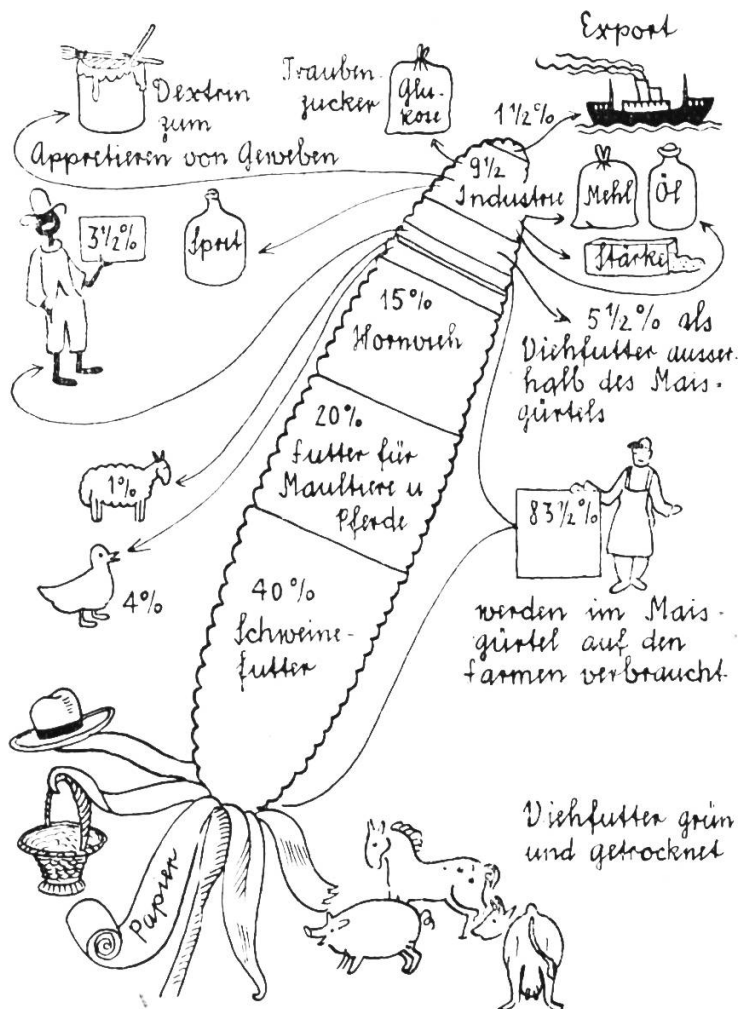 Export
Dextrin
zum
Appretieren von Geweben
Trauben-
zucker
Glu-
kose
1 1/2 %
9 1/2
Industrie
Mehl
Öl
Stärke
3 1/2 %
Sprit
15 %
Hornvieh
5 1/2 % als
Viehfutter ausser-
halb des Mais-
gürtels
20 %
Futter für
Maultiere u
Pferde
1 %
4 %
40 %
Schweine-
futter
83 1/2 %
werden im Mais-
gürtel auf den
Farmen verbraucht
Viehfutter grün
und getrocknet
Papier